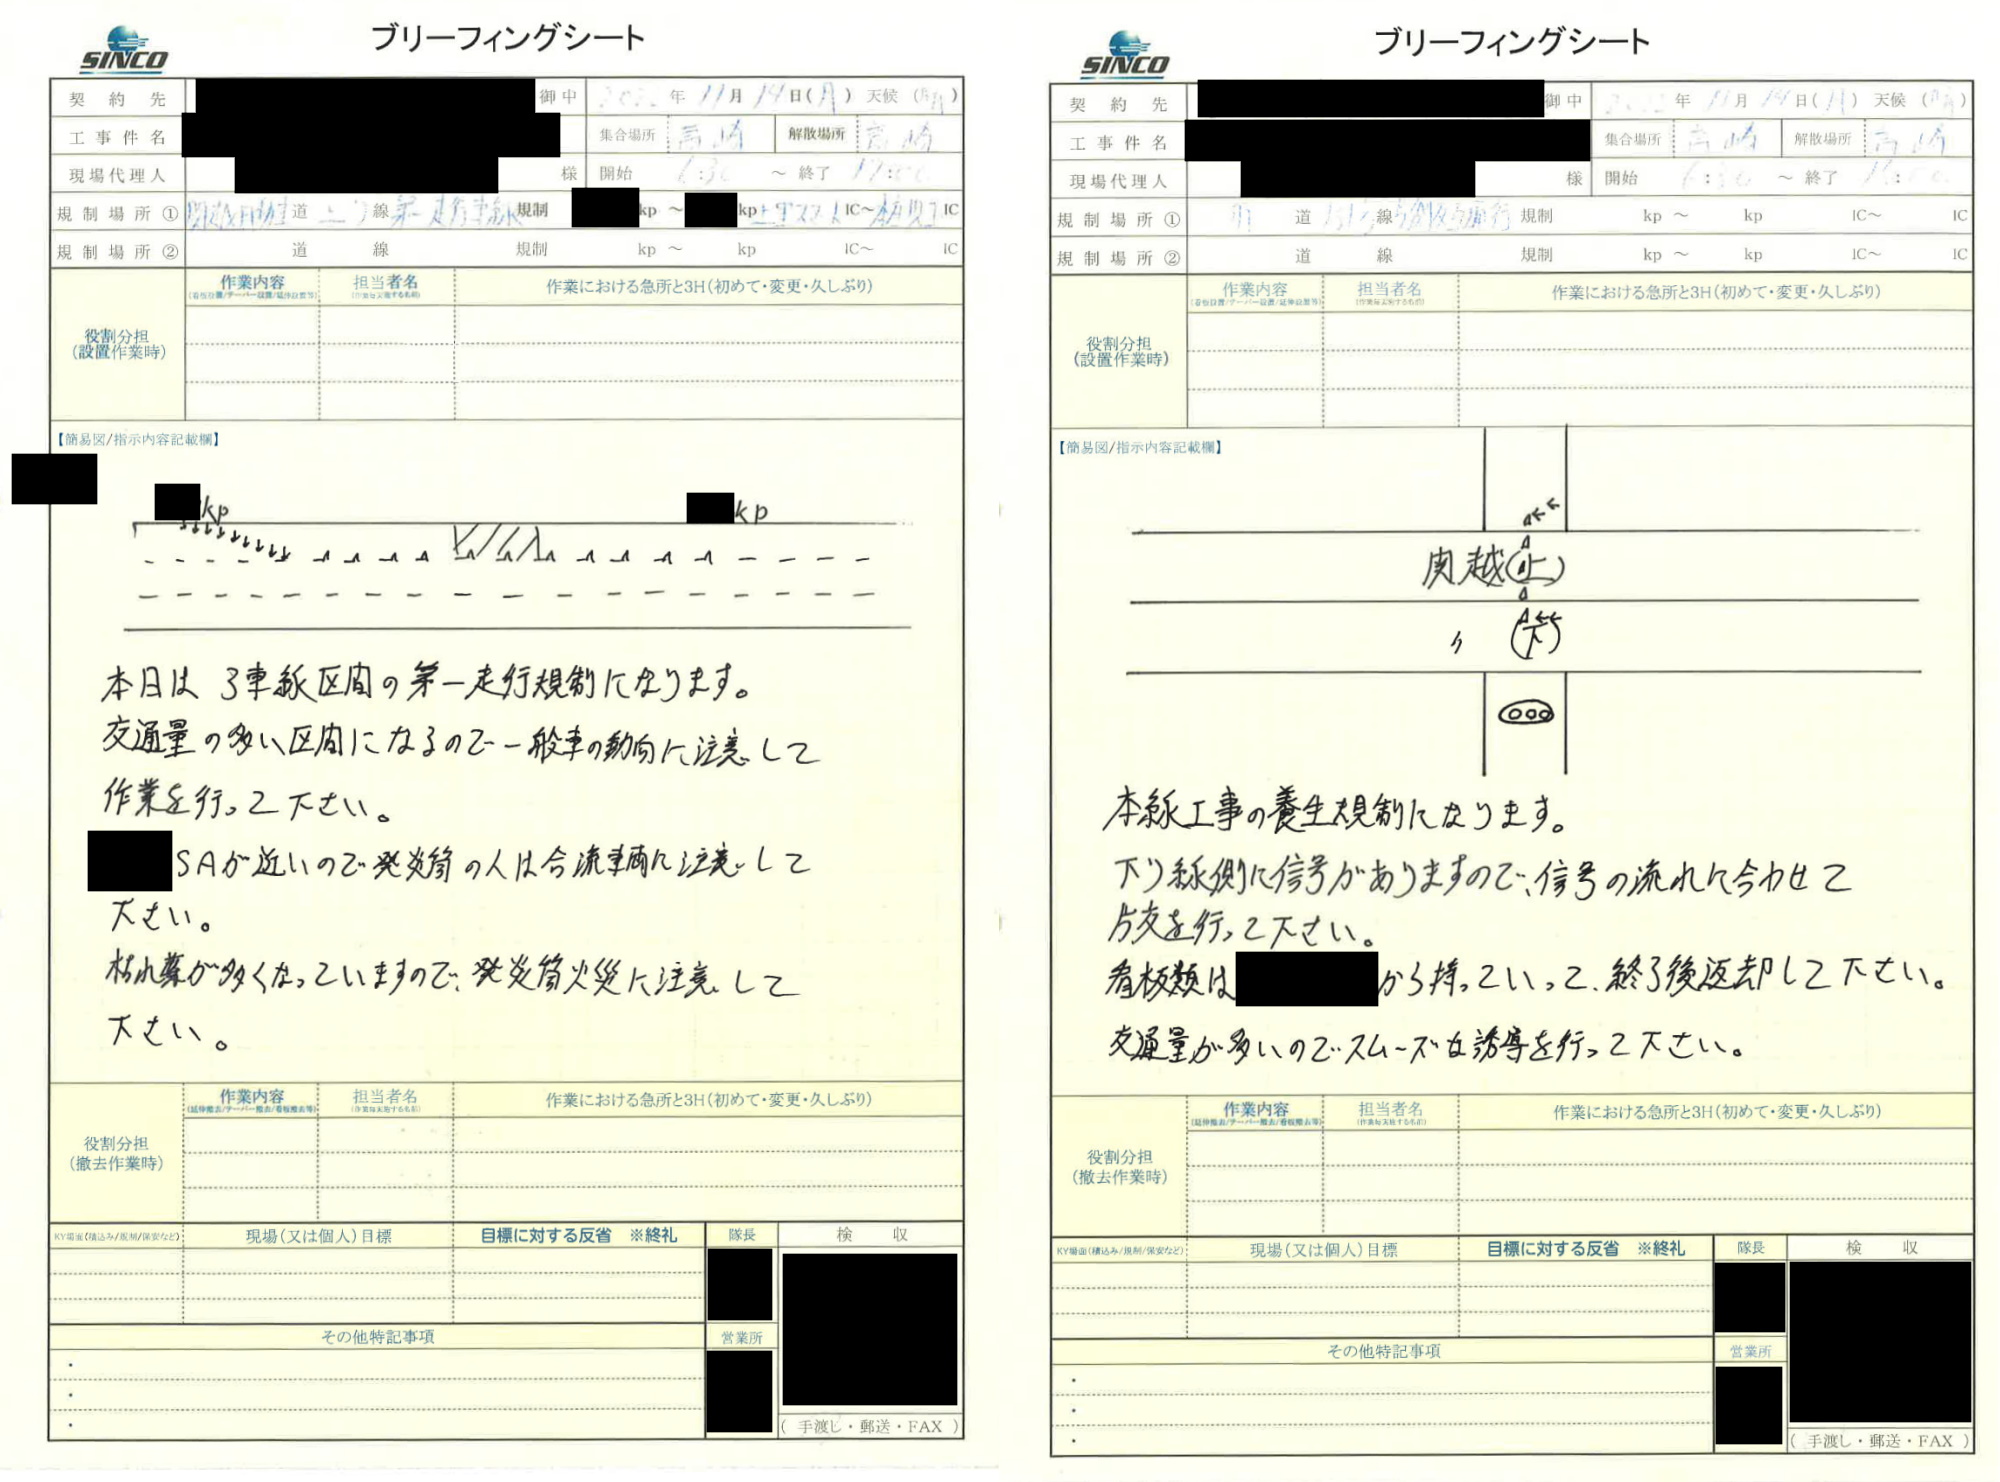 SINCO
ブリーフィングシート
契約先 御中 年 11月 14日(月) 天候 (晴)
工事件名 集合場所 高崎 解散場所 高崎
現場代理人 様 開始 6:30 ～ 終了 17:00
規制場所① 道 上り 線 第一走行車線 規制 kp ～ kp IC～ IC
規制場所② 道 線 規制 kp ～ kp IC～ IC
役割分担
(設置作業時)
作業内容 担当者名 作業における急所と3H(初めて・変更・久しぶり)
(看板設置/テーパー設置/延伸設置等)
【簡易図/指示内容記載欄】
kp kp
本日は 3車線区間の第一走行規制になります。
交通量の多い区間になるので一般車の動向に注意して
作業を行って下さい。
SAが近いので発炎筒の人は合流車両に注意して
下さい。
枯れ葉が多くなっていますので、発炎筒火災に注意して
下さい。
役割分担
(撤去作業時)
作業内容 担当者名 作業における急所と3H(初めて・変更・久しぶり)
(延伸撤去/テーパー撤去/看板撤去等)
KY場面(積込み/規制/保安など) 現場(又は個人)目標 目標に対する反省 ※終礼 隊長 検収
その他特記事項 営業所
・
・
・
(手渡し・郵送・FAX)
SINCO
ブリーフィングシート
契約先 御中 年 11月 14日(月) 天候 (晴)
工事件名 集合場所 高崎 解散場所 高崎
現場代理人 様 開始 6:30 ～ 終了
規制場所① 道 線 規制 kp ～ kp IC～ IC
規制場所② 道 線 規制 kp ～ kp IC～ IC
役割分担
(設置作業時)
作業内容 担当者名 作業における急所と3H(初めて・変更・久しぶり)
(看板設置/テーパー設置/延伸設置等)
【簡易図/指示内容記載欄】
関越(上)
〃 (下)
本線工事の養生規制になります。
下り線側に信号がありますので、信号の流れに合わせて
片交を行って下さい。
看板類は から持っていって、終了後返却して下さい。
交通量が多いのでスムーズな誘導を行って下さい。
役割分担
(撤去作業時)
作業内容 担当者名 作業における急所と3H(初めて・変更・久しぶり)
(延伸撤去/テーパー撤去/看板撤去等)
KY場面(積込み/規制/保安など) 現場(又は個人)目標 目標に対する反省 ※終礼 隊長 検収
その他特記事項 営業所
・
・
・
(手渡し・郵送・FAX)